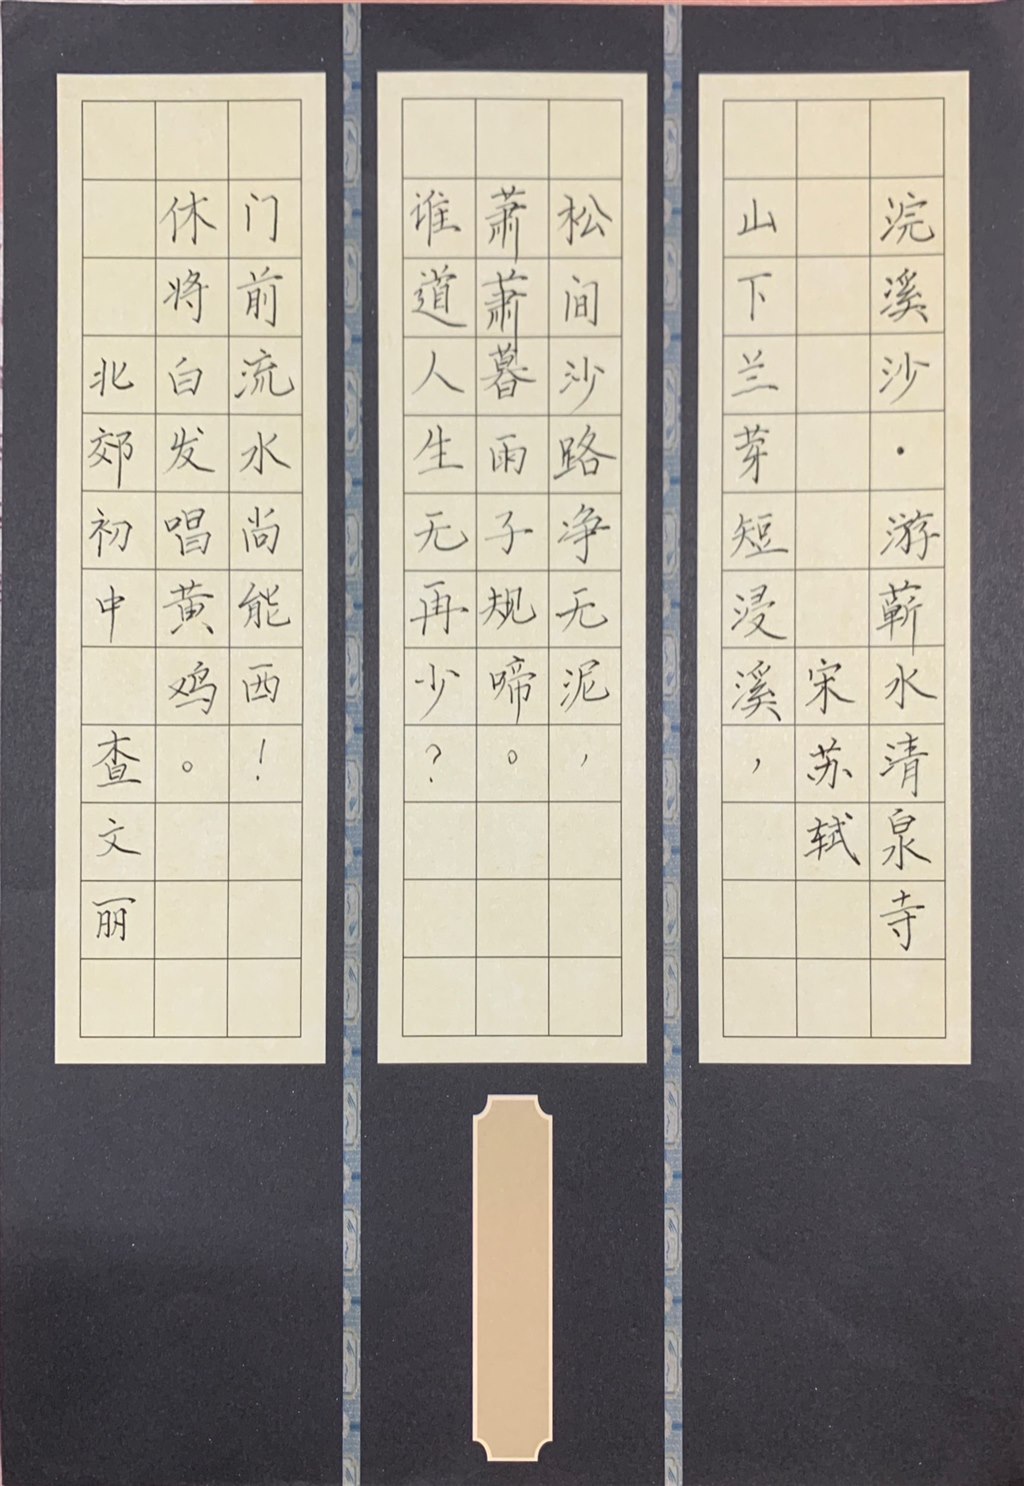 浣溪沙·游蕲水清泉寺
宋苏轼
山下兰芽短浸溪，
松间沙路净无泥，
萧萧暮雨子规啼。
谁道人生无再少？
门前流水尚能西！
休将白发唱黄鸡。
北郊初中 查文丽